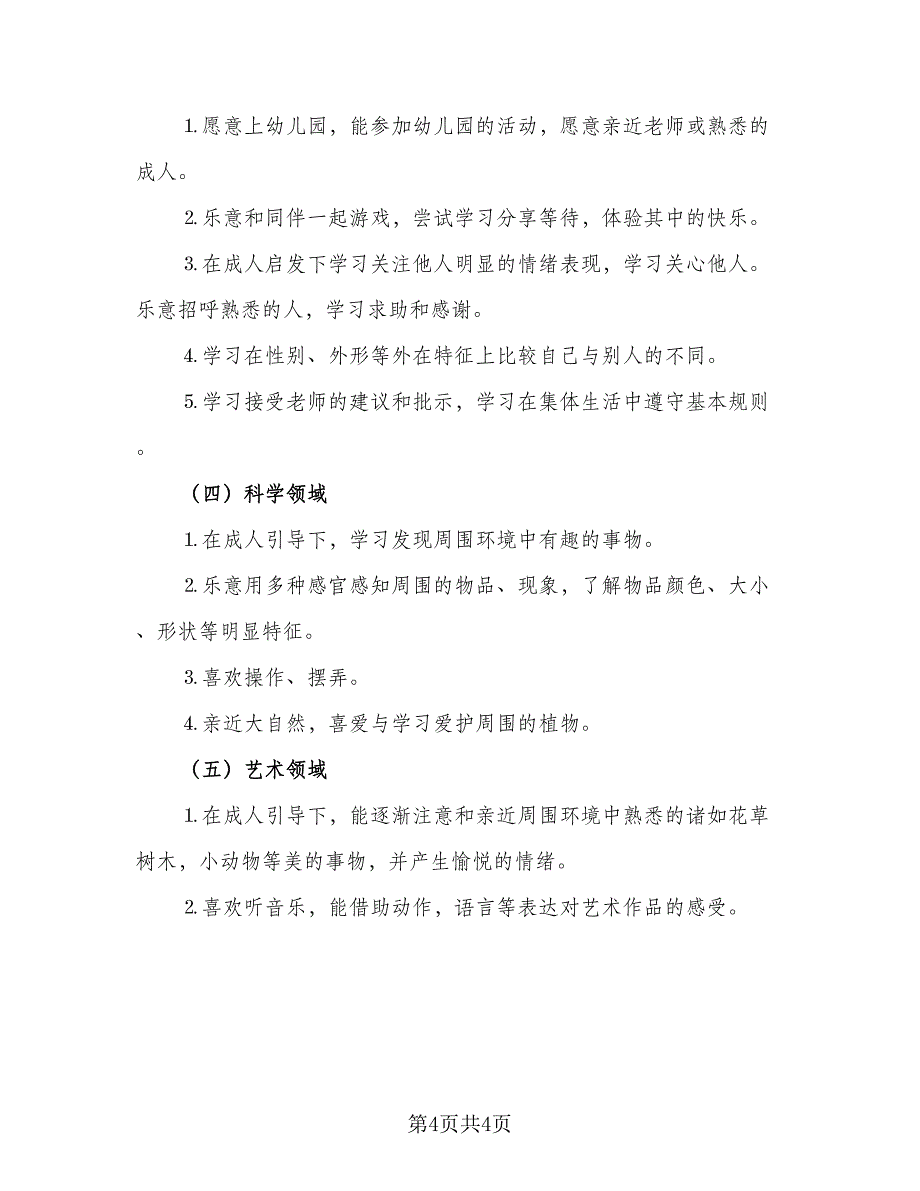 1.愿意上幼儿园，能参加幼儿园的活动，愿意亲近老师或熟悉的
成人。
2.乐意和同伴一起游戏，尝试学习分享等待，体验其中的快乐。
3.在成人启发下学习关注他人明显的情绪表现，学习关心他人。
乐意招呼熟悉的人，学习求助和感谢。
4.学习在性别、外形等外在特征上比较自己与别人的不同。
5.学习接受老师的建议和批示，学习在集体生活中遵守基本规则
。
（四）科学领域
1.在成人引导下，学习发现周围环境中有趣的事物。
2.乐意用多种感官感知周围的物品、现象，了解物品颜色、大小
、形状等明显特征。
3.喜欢操作、摆弄。
4.亲近大自然，喜爱与学习爱护周围的植物。
（五）艺术领域
1.在成人引导下，能逐渐注意和亲近周围环境中熟悉的诸如花草
树木，小动物等美的事物，并产生愉悦的情绪。
2.喜欢听音乐，能借助动作，语言等表达对艺术作品的感受。
第4页共4页